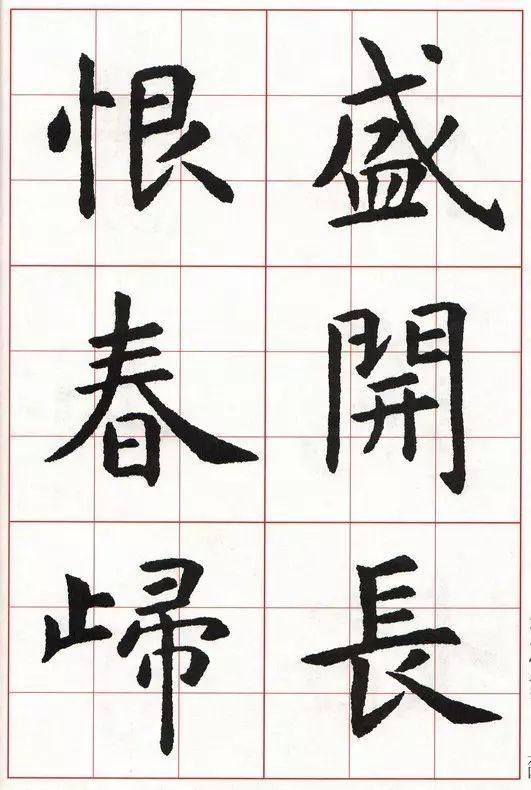 盛開長
恨春㱕